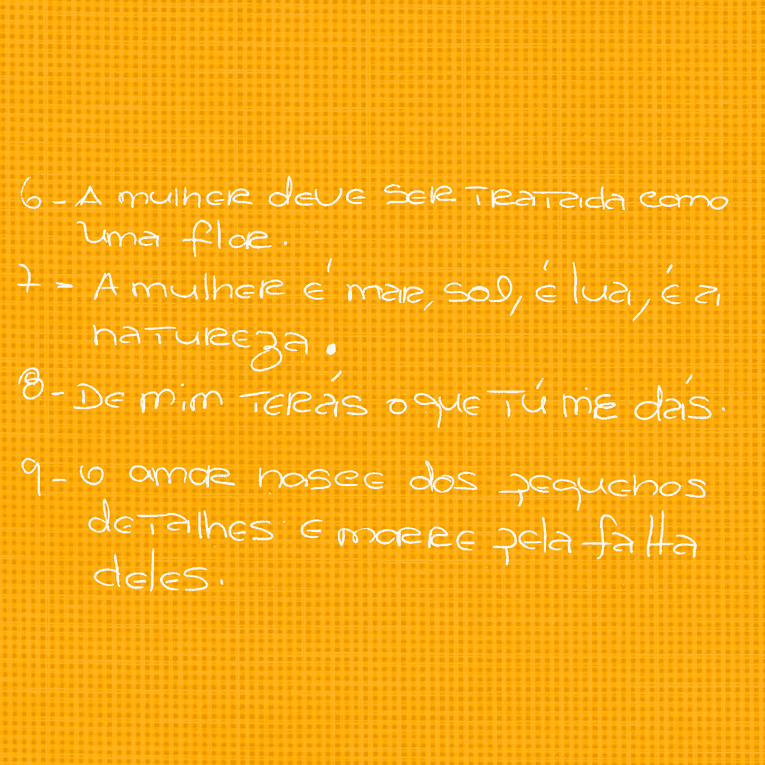 6 - A mulher deve ser tratada como
uma flor.
7 - A mulher é mar, sol, é lua, é a
natureza.
8 - De mim terás o que tú me dás.
9 - o amor nasce dos pequenos
detalhes e morre pela falta
deles.